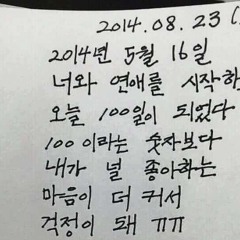 2014.08.23 (
2014년 5월 16일
너와 연애를 시작하
오늘 100일이 되었다
100 이라는 숫자보다
내가 널 좋아하는
마음이 더 커서
걱정이 돼 ㅠㅠ